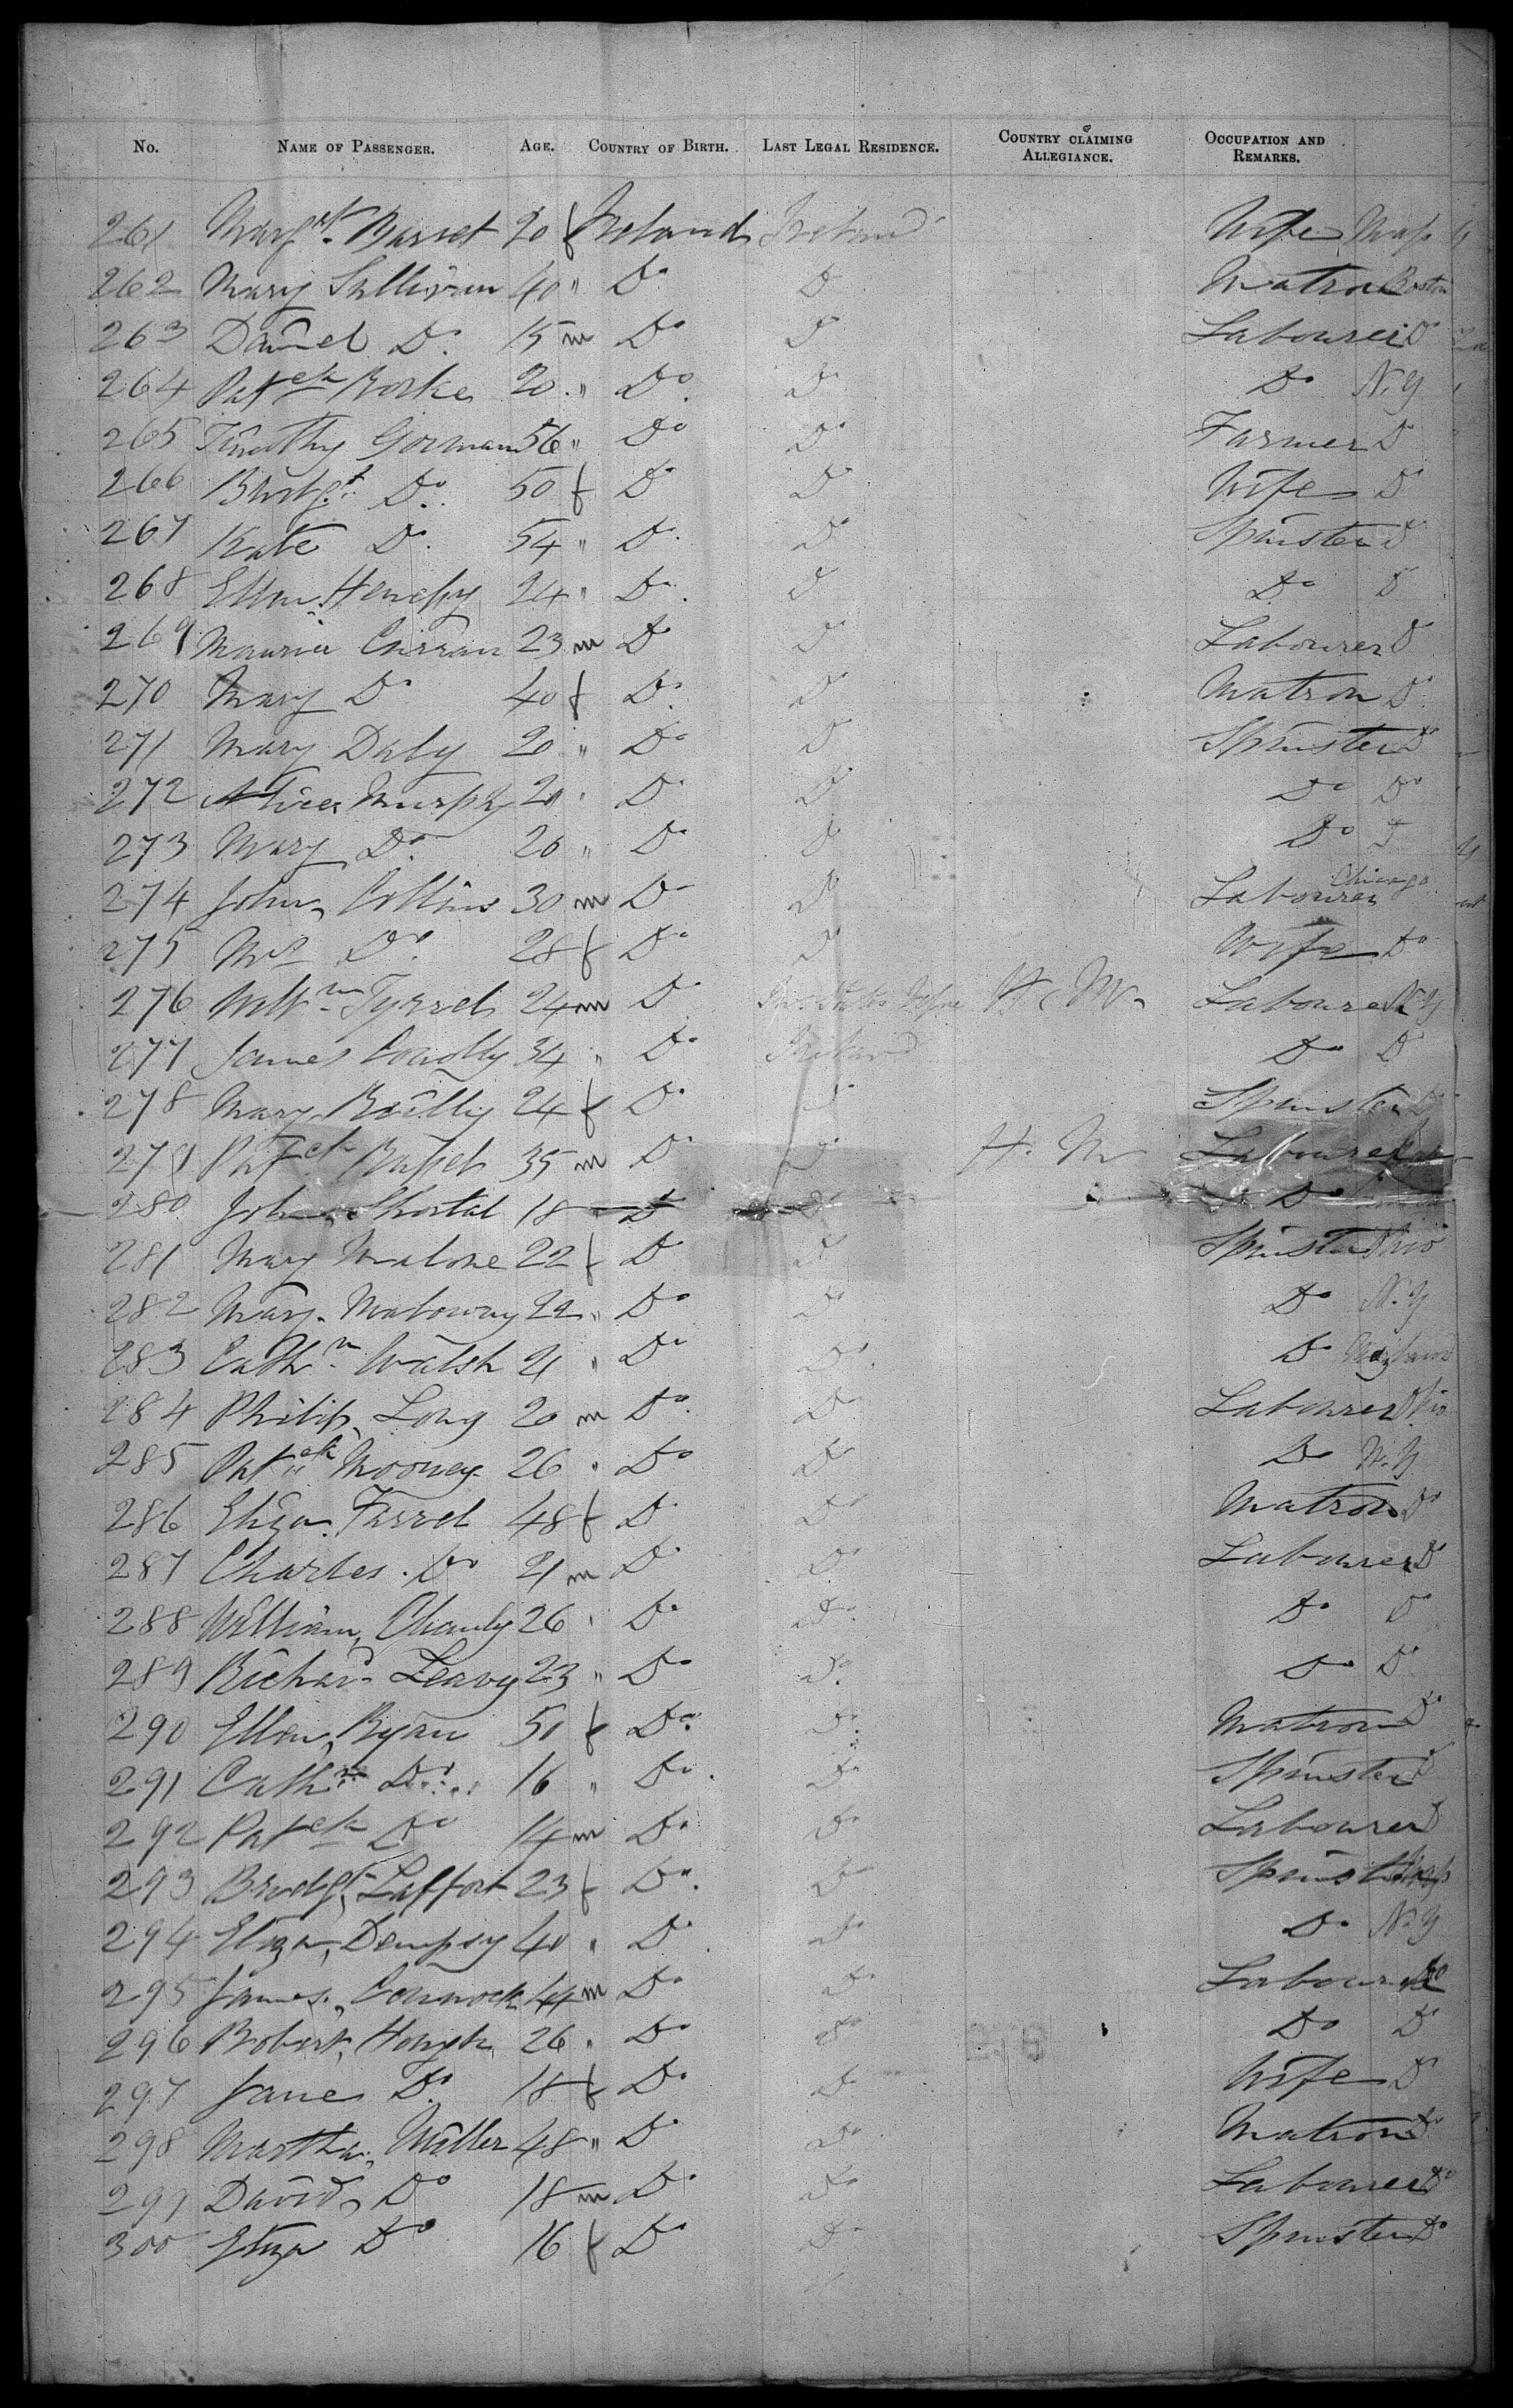 No. NAME OF PASSENGER. AGE. COUNTRY OF BIRTH. LAST LEGAL RESIDENCE. COUNTRY CLAIMING ALLEGIANCE. OCCUPATION AND REMARKS.
261 Margt. Barret 20 f Ireland Ireland Wife Mass
262 Mary Sullivan 40 " Do Do Matron Boston
263 Daniel Do. 15 m Do Do Labourer Do
264 Patck 20 " Do. Do Do N.Y
265 Timothy Gorman 56 " Do Do Farmer Do
266 Bridgt. Do. 50 f Do Do Wife Do
267 Kate Do. 54 " Do. Do Spinster Do
268 Ellen 24 " Do. Do Do Do
269 Maurice Curran 23 m Do Do Labourer Do
270 Mary Do 40 f Do. Do Matron Do
271 Mary Daly 20 " Do Do Spinster Do
272 Alice Murphy 20 " Do Do Do Do
273 Mary Do. 20 " Do Do Do Do
274 John Collins 30 m Do Do Labourer Chicago
275 Mrs Do. 28 f Do Do Wife Do
276 Willm Tyrrel 24 m Do Labourer N.Y
277 James Conolly 34 " Do Ireland Do Do
278 Mary Reilly 24 f Do Do Spinster Do
279 Patck 35 m Do Do Labourer
280 John Shortal 18 Do Do Do
281 Mary Malone 22 f Do Do Spinster Ohio
282 Mary Maloway 22 " Do Do Do N.Y
283 Cathn Walsh 21 " Do Do. Do
284 Philip Long 20 m Do. Do Labourer Ohio
285 Patck Mooney 26 " Do Do Do N.Y
286 Eliza Farrel 48 f Do Do Matron Do
287 Charles Do 21 m Do Do Labourer Do
288 William 26 " Do Do Do Do
289 Richard Leavy 23 " Do Do. Do Do
290 Ellen Ryan 50 f Do. Do Matron Do
291 Cathn Do 16 " Do. Do Spinster Do
292 Patck Do 14 m Do. Do Labourer Do
293 Bridgt. Laffort 23 f Do. Do Spinster Mass
294 Eliza Dempsy 40 " Do Do Do N.Y
295 James 44 m Do Do Labourer Do
296 Robert Hough 26 " Do Do Do Do
297 Jane Do. 18 f Do Do Wife Do
298 Martha Miller 48 " Do Do Matron Do
299 David Do 18 m Do Do Labourer Do
300 Eliza Do 16 f Do Do Spinster Do